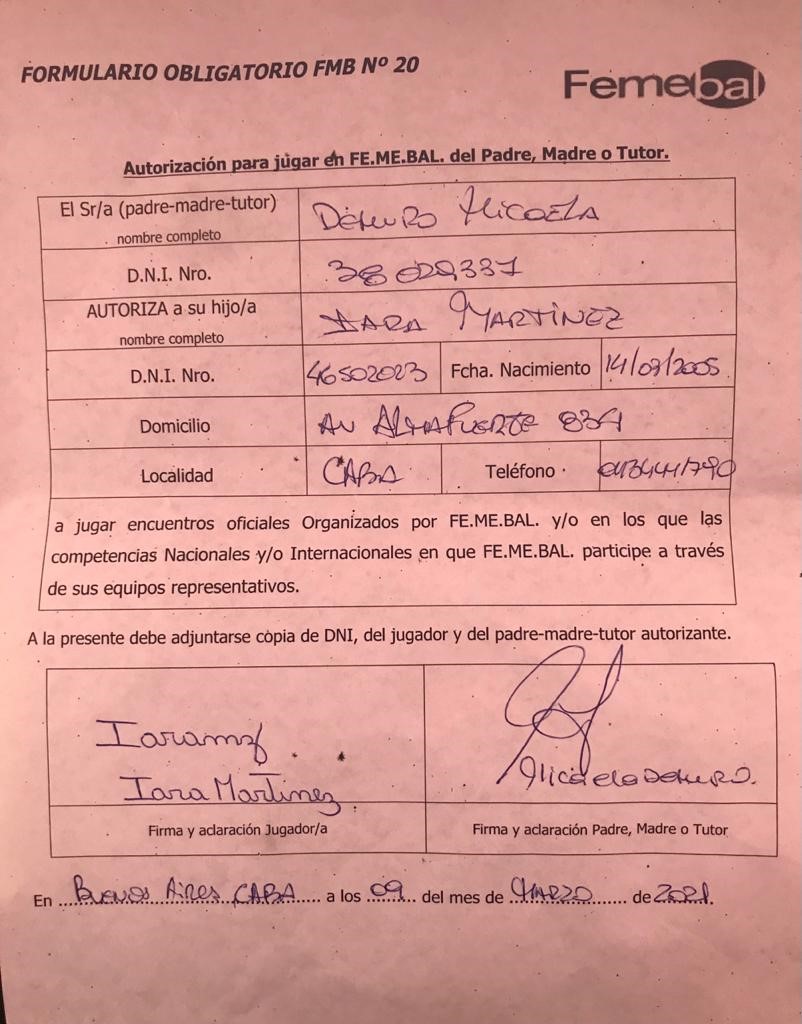 FORMULARIO OBLIGATORIO FMB Nº 20
Femebal
Autorización para jugar en FE.ME.BAL. del Padre, Madre o Tutor.
El Sr/a (padre-madre-tutor)
nombre completo
DEMURO MICAELA
D.N.I. Nro.
AUTORIZA a su hijo/a
nombre completo
IARA MARTINEZ
D.N.I. Nro.
46502023
Fcha. Nacimiento
Domicilio
AV ALMAFUERTE
Localidad
CABA
Teléfono
a jugar encuentros oficiales Organizados por FE.ME.BAL. y/o en los que las
competencias Nacionales y/o Internacionales en que FE.ME.BAL. participe a través
de sus equipos representativos.
A la presente debe adjuntarse copia de DNI, del jugador y del padre-madre-tutor autorizante.
Iara Martinez
Micaela DEMURO.
Firma y aclaración Jugador/a
Firma y aclaración Padre, Madre o Tutor
En Buenos Aires CABA a los 09 del mes de MARZO de 2021.